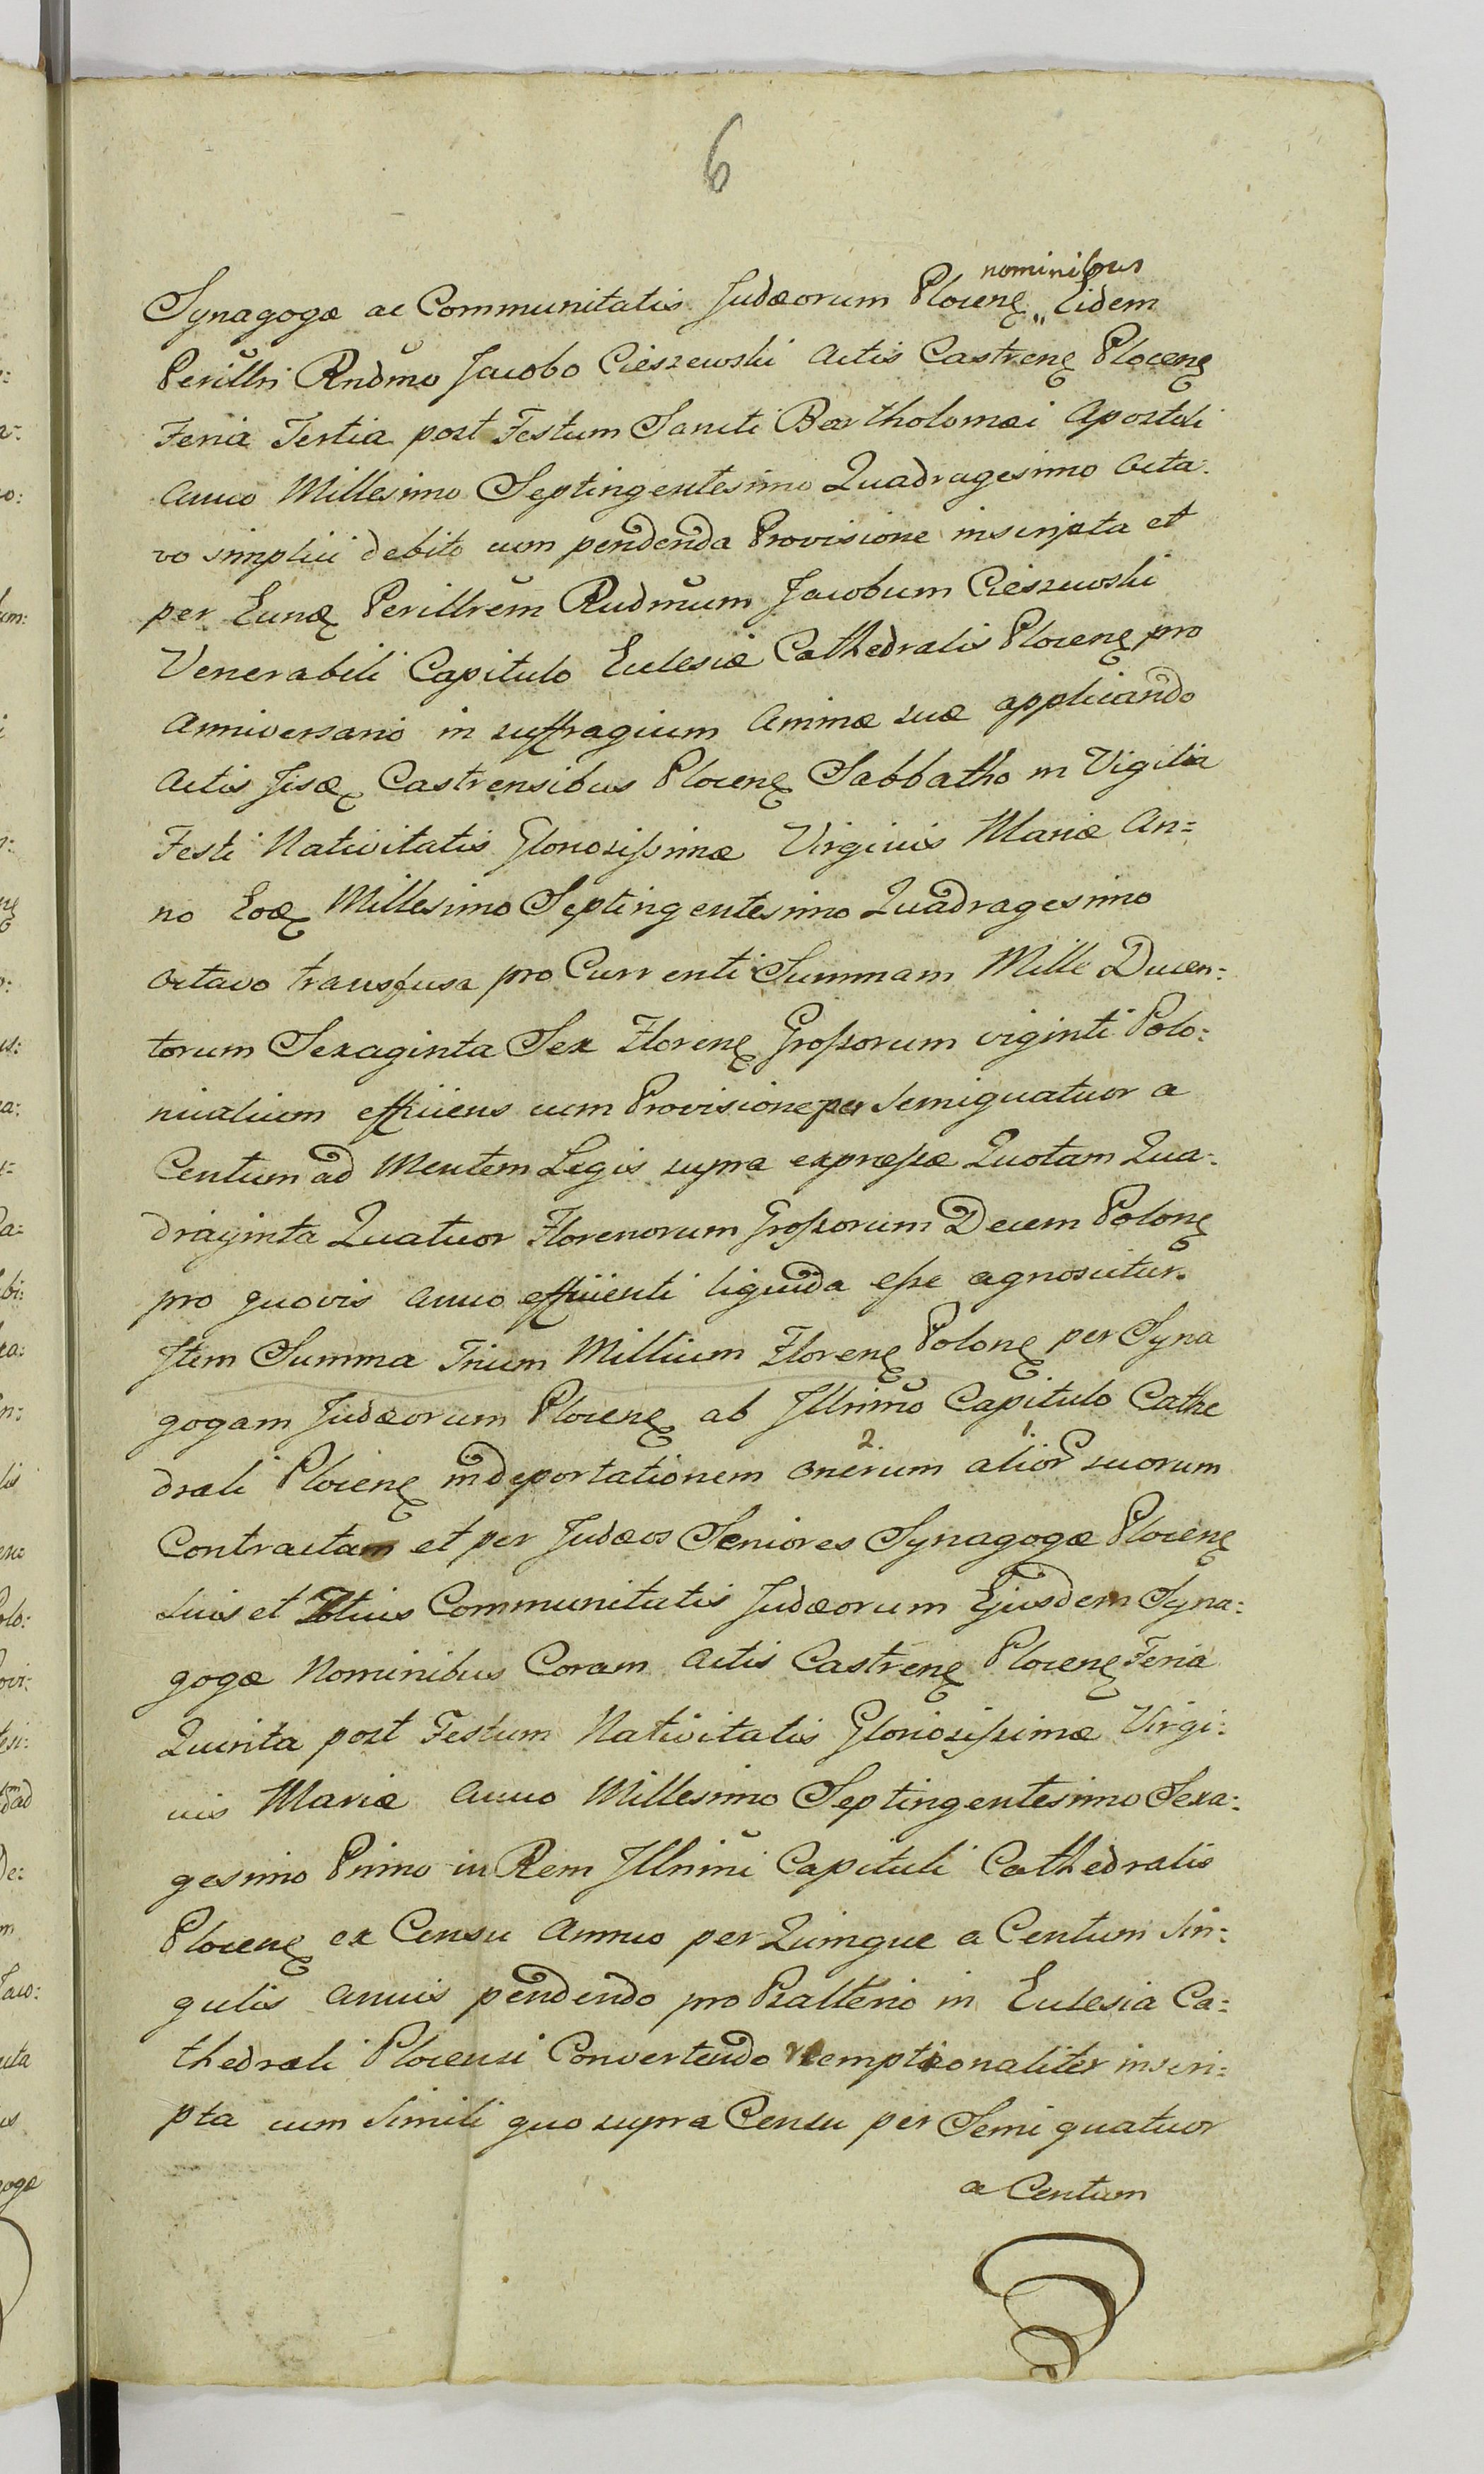 6
nominibus
Synagogæ ac Communitatis Judæorum Plocenę „ Eidem
Perillri Rndmo Jacobo Cieszewski Actis Castrenę Plocenę
Feria Tertia post Festum Sancti Bartholomæi Apostoli
Anno Millesimo Septingentesimo Quadragesimo Octa:
vo simplici debito cum pendenda Provisione inscripta et
per Eundę Perillrem Rndmum Jacobum Cieszewski
Venerabili Capitulo Eclesiæ Cathedralis Plocenę pro
Anniversario in suffragium Animæ suæ applicando
Actis Jisdę Castrensibus Plocenę Sabbatho in Vigilia
Festi Nativitatis Gloriosissimæ Virginis Mariæ An=
no Eodę Millesimo Septingentesimo Quadragesimo
Octavo transfusa pro Currenti Summam Mille Ducen:
torum Sexaginta Sex Florenę Grossorum viginti Polo:
nicalium efficiens cum Provisione per Semiquatuor a
Centum ad Mentem Legis supra expressæ Quotam Qua:
draginta Quatuor Florenorum Grossorum Decem Polonę
pro quovis Anno efficienti liquida esse agnoscitur.
Item Summa Trium Millium Florenę Polonę per Syna
gogam Judæorum Plocenę ab Illrimo Capitulo Cathe
2. 1.
drali Plocenę in deportationem Onerum alior suorum
Contractam et per Judæos Seniores Synagogæ Plocenę
suis et Totius Communitatis Judæorum Ejusdem Syna:
gogæ Nominibus Coram Actis Castrenę Plocenę Feria
Quinta post Festum Nativitatis Gloriosissimæ Virgi:
nis Mariæ Anno Millesimo Septingentesimo Sexa:
gesimo Primo in Rem Illrimi Capituli Cathedralis
Plocenę ex Censu Annuo per Quinque a Centum Sin:
gulis Annis pendendo pro Psalterio in Eclesia Ca:
thedrali Plocensi Convertendo reemptionaliter inscri:
pta cum Simili quo supra Censu per Semi quatuor
a Centum